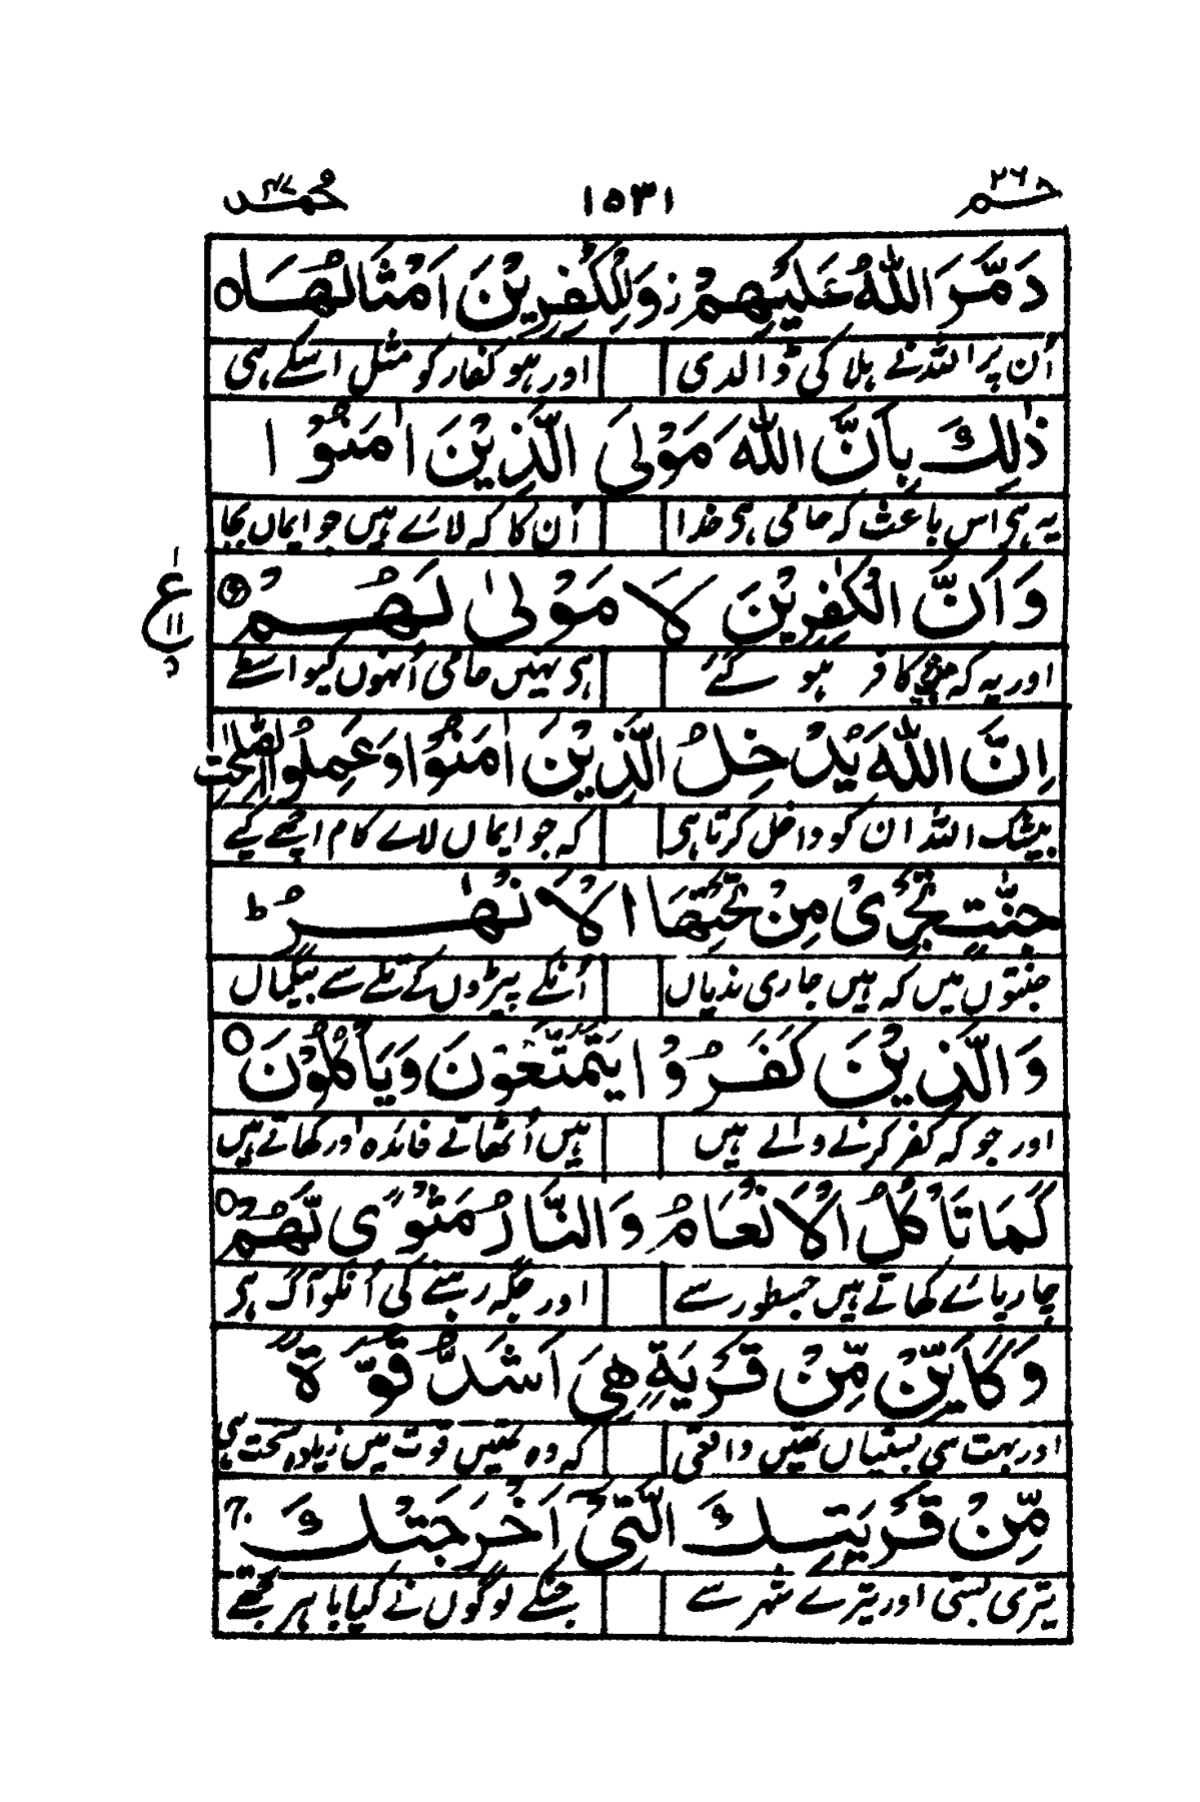 حٰم ٢٦ ١٥٣١ محمد ٤٧
دَمَّرَ اللّٰهُ عَلَيْهِمْ ز وَلِلْكٰفِرِيْنَ اَمْثَالُهَا ○
اُن پر اللہ نے ہلاکی ڈالدی اور ہو کفار کو مثل اسکے ہی
ذٰلِكَ بِاَنَّ اللّٰهَ مَوْلَى الَّذِيْنَ اٰمَنُوْا
یہ ہی اس باعث کہ حامی ہی خدا اُن کا کہ لائے ہیں جو ایماں بجا
وَاَنَّ الْكٰفِرِيْنَ لَا مَوْلٰى لَهُمْ
اور یہ کہ کافر ہو گئے ہی نہیں حامی اُنہوں کیواسطے
ع ١١
اِنَّ اللّٰهَ يُدْخِلُ الَّذِيْنَ اٰمَنُوْا وَعَمِلُوا الصّٰلِحٰتِ
بیشک اللہ ان کو داخل کرتا ہی کہ جو ایماں لائے کام اچھے کیے
جَنّٰتٍ تَجْرِىْ مِنْ تَحْتِهَا الْاَنْهٰرُ ط
جنتوں میں کہ ہیں جاری ندیاں اُنکے پیڑوں کے تلے سے بیگماں
وَالَّذِيْنَ كَفَرُوْا يَتَمَتَّعُوْنَ وَيَاْكُلُوْنَ ○
اور جو کہ کفر کرنے والے ہیں ہیں اُٹھاتے فائدہ اور کھاتے ہیں
كَمَا تَاْكُلُ الْاَنْعَامُ وَالنَّارُ مَثْوًى لَّهُمْ ○
چارپائے کھاتے ہیں جسطور سے اور جگہ رہنے کی اُنکو آگ ہی
وَكَاَيِّنْ مِّنْ قَرْيَةٍ هِىَ اَشَدُّ قُوَّةً
اور بہت سی بستیاں تھیں واقعی کہ وہ تھیں قوت میں زیادہ سخت ہی
مِّنْ قَرْيَتِكَ الَّتِىْٓ اَخْرَجَتْكَ ج
تیری بستی اور تیرے شہر سے جنکے لوگوں نے کیا باہر تجھے